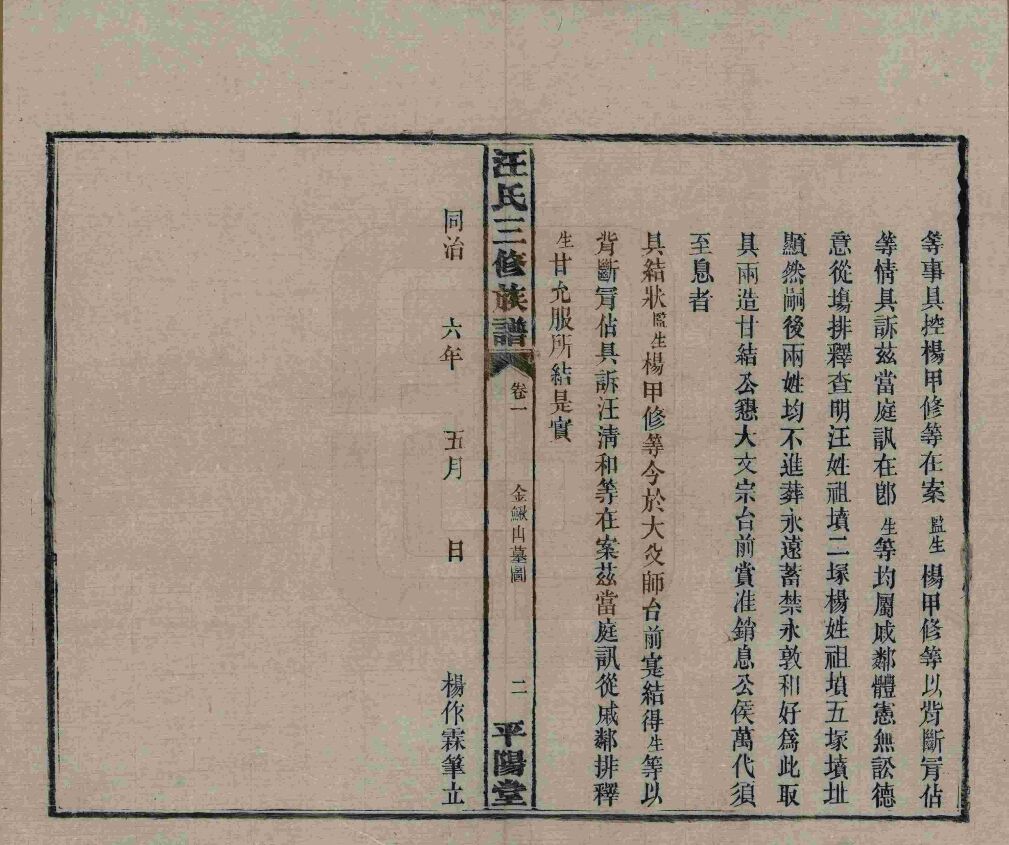 等事具控楊甲修等在案監生楊甲修等以背斷冐佔
等情具訴茲當庭訊在郎生等均屬戚鄰體憲無訟德
意從塲排釋查明汪姓祖墳二塚楊姓祖墳五塚墳址
顯然嗣後兩姓均不進葬永遠蓄禁永敦和好爲此取
具兩造甘結公懇大文宗台前賞准銷息公侯萬代須
至息者
具結狀監生楊甲修等今於大父師台前寔結得生等以
背斷冐佔具訴汪清和等在案茲當庭訊從戚鄰排釋
生甘允服所結是實
汪氏三修族譜 卷一 金鰍山墓圖 二 平陽堂
同治 六年 五月 日 楊作霖筆立